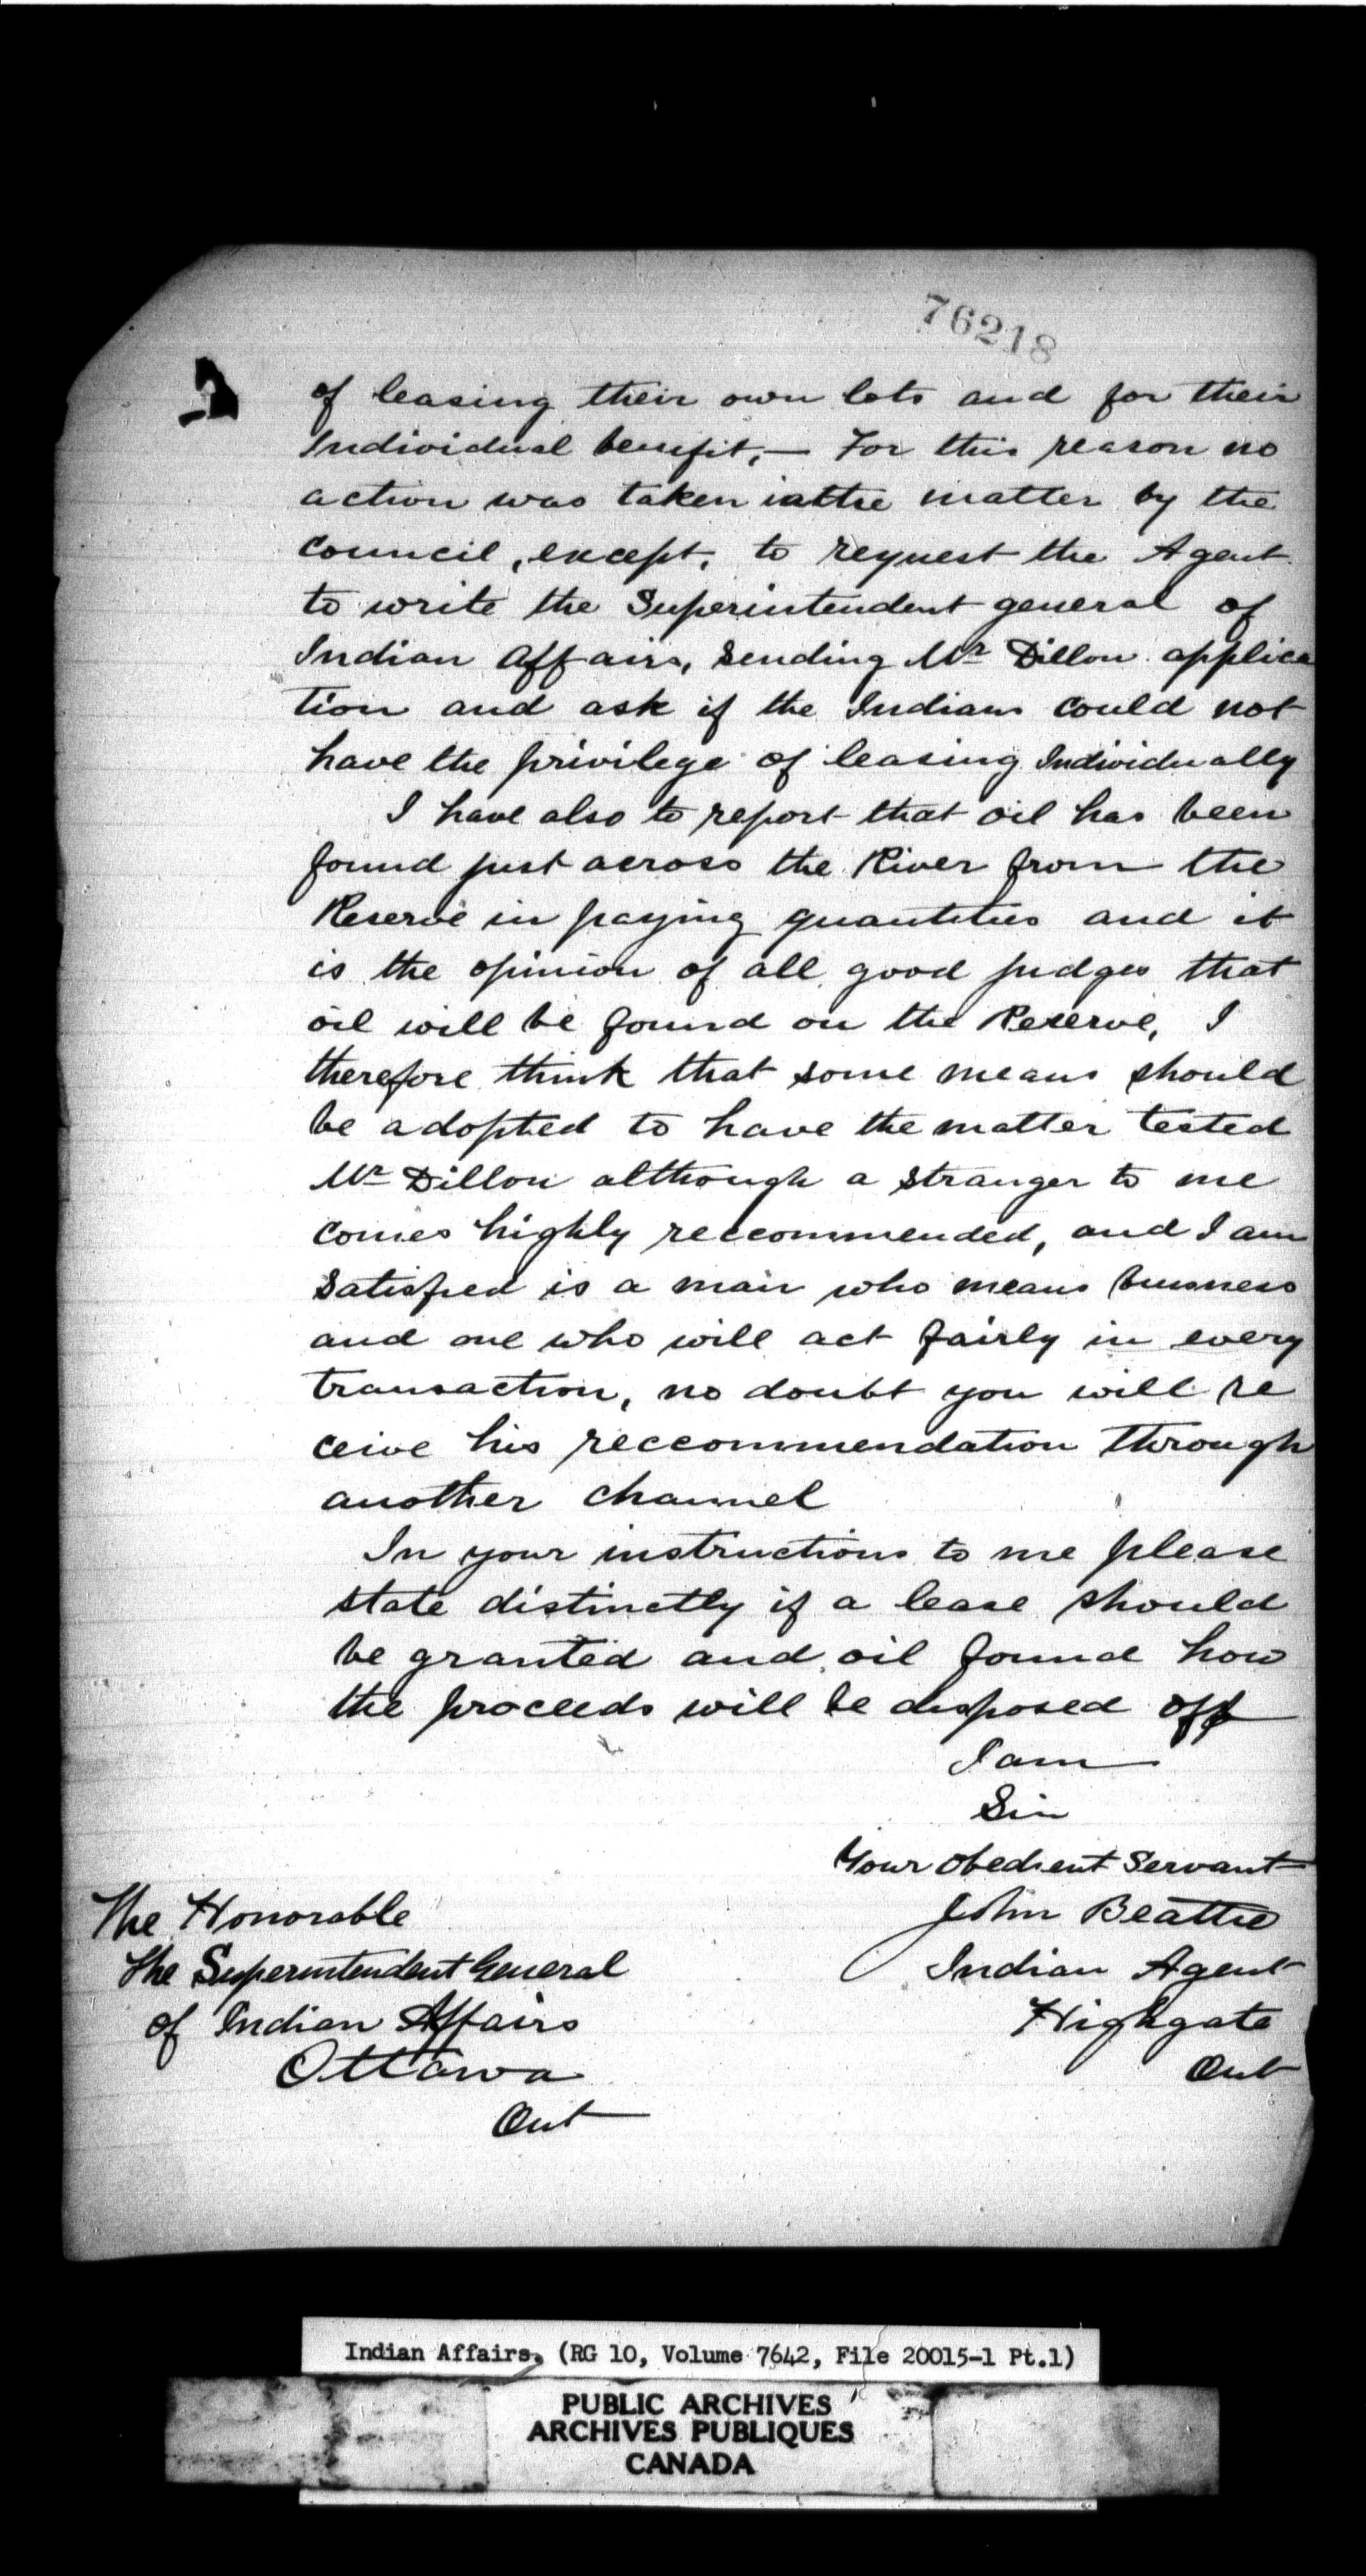 76218
of leasing their own lots and for their
Individual benefit, — For this reason no
action was taken in the matter by the
Council, except, to request the Agent
to write the Superintendent general of
Indian Affairs, sending Mr Dillon applica
tion and ask if the Indians could not
have the privilege of leasing Individually
I have also to report that oil has been
found just across the River from the
Reserve in paying quantities and it
is the opinion of all good judges that
oil will be found on the Reserve, I
therefore think that some means should
be adopted to have the matter tested
Mr Dillon although a stranger to me
comes highly reccommended, and I am
satisfied is a man who means business
and one who will act fairly in every
transaction, no doubt you will re
ceive his reccommendation through
another channel
In your instructions to me please
state distinctly if a lease should
be granted and oil found how
the proceeds will be disposed off
I am
Sir
Your obedient Servant
John Beattie
Indian Agent
Highgate
Ont
The Honorable
The Superintendent General
of Indian Affairs
Ottawa
Ont
Indian Affairs. (RG 10, Volume 7642, File 20015-1 Pt.1)
PUBLIC ARCHIVES
ARCHIVES PUBLIQUES
CANADA